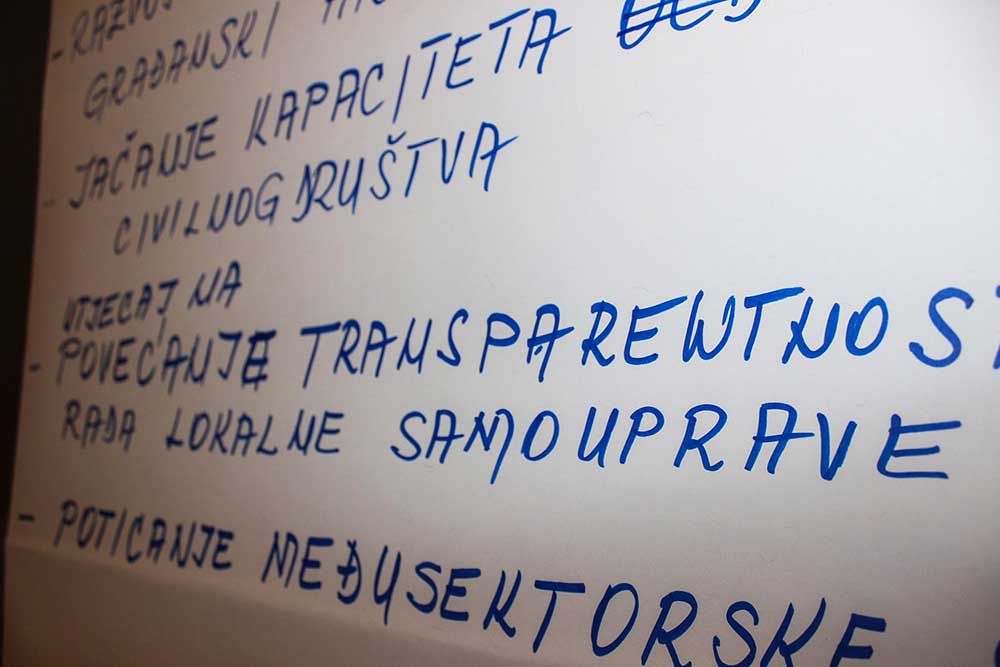 - RAZVOJ
GRAĐANSKI
- JAČANJE KAPACITETA
CIVILNOG DRUŠTVA
UTJECAJ NA
- POVEĆANJE TRANSPARENTNOS
RADA LOKALNE SAMOUPRAVE
- POTICANJE MEĐUSEKTORSKE